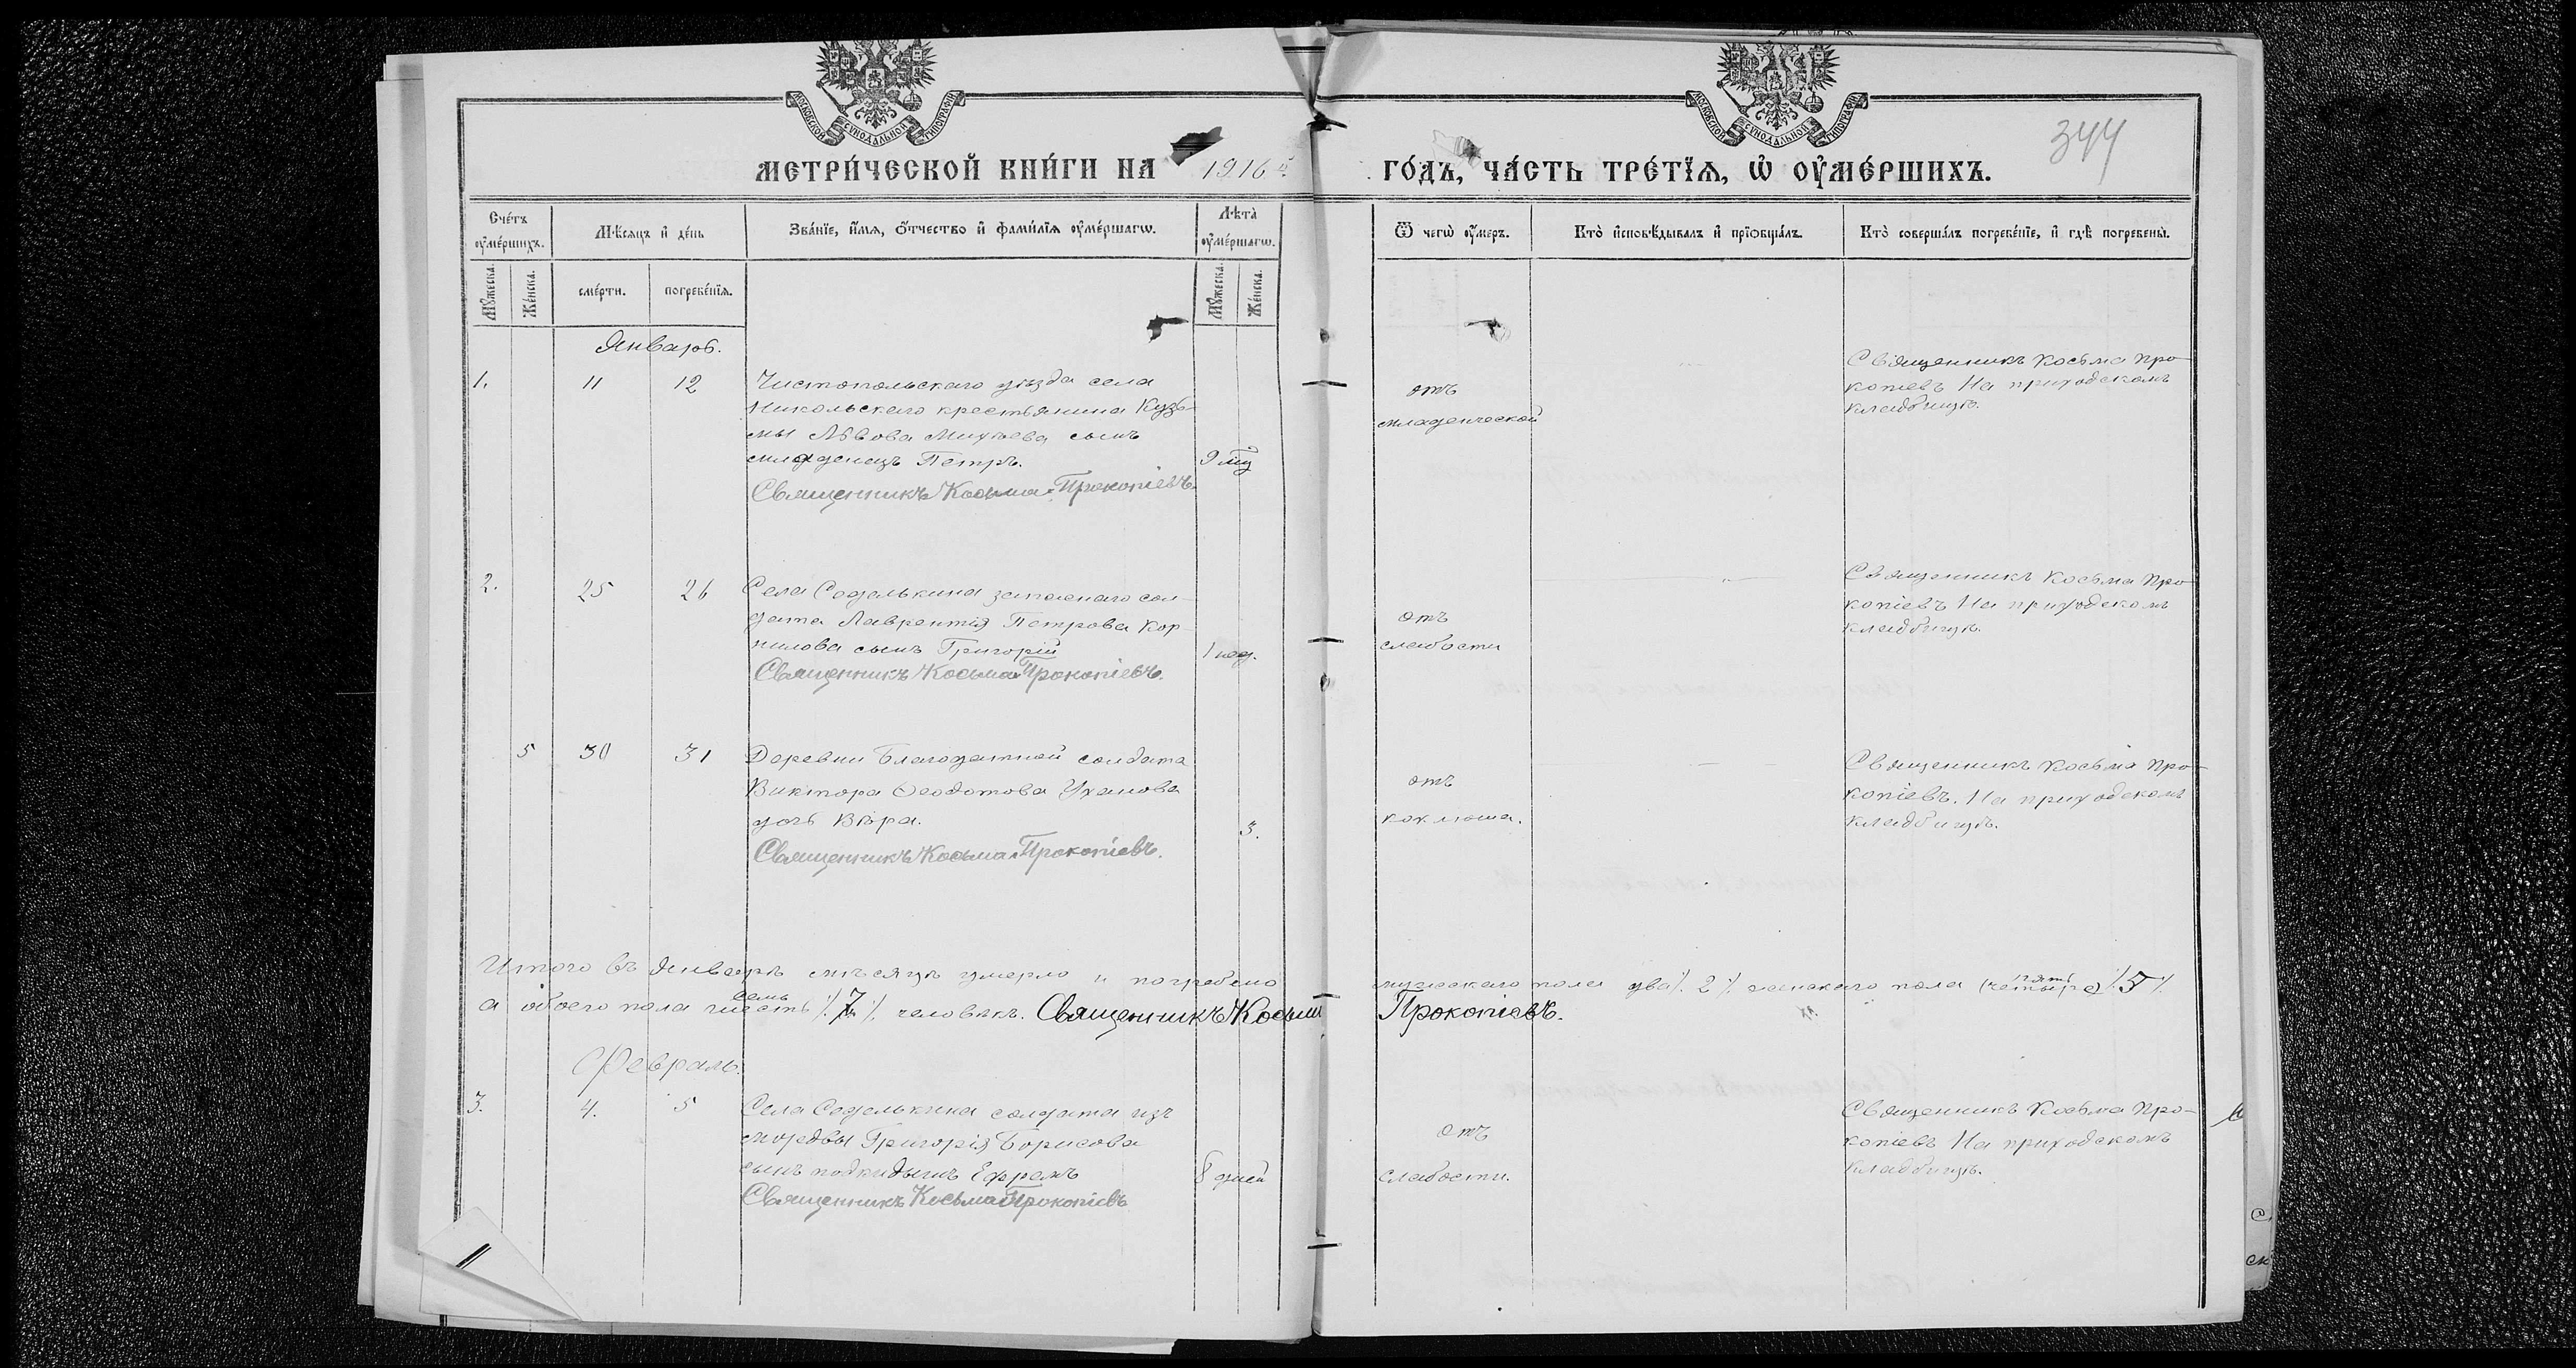 МОСКОВСКОЙ СѴНОДАЛЬНОЙ ТИПОГРАФІИ
МОСКОВСКОЙ СѴНОДАЛЬНОЙ ТИПОГРАФІИ
МЕТРИ́ЧЕСКОЙ КНИ́ГИ НА 1916й
ГО́ДЪ, ЧА́СТЬ ТРЕ́ТЇѦ, Ѡ҆ ОУ҆МЕ́РШИХЪ.
344
Сче́тъ оу҆ме́ршихъ.
Мѣ́сяцъ и҆ де́нь
Зва́нїе, и҆́мѧ, ѻ҆́тчество и҆ фами́лїѧ оу҆ме́ршагѡ.
Лѣта̀ оу҆ме́ршагѡ.
Ѿ чегѡ̀ оу҆́меръ.
Кто̀ и҆сповѣ́дывалъ и҆ прїѡбща́лъ.
Кто̀ соверша́лъ погребе́нїе, и҆ гдѣ̀ погребены̀.
Мꙋ́жеска.
Же́нска.
сме́рти.
погребе́нїѧ.
Мꙋ́жеска.
Же́нска.
Январь.
1. 11 12 Чистопольскаго уѣзда села
Никольскаго крестьянина Кузь-
мы Львова Михѣева сынъ
младенецъ Петръ. 9 мц
Священникъ Косьма Прокопіевъ.
отъ
младенческой
Священникъ Косьма Про-
копіевъ На приходскомъ
кладбищѣ.
2. 25 26 Села Седелькина запаснаго сол-
дата Лаврентія Петрова Кор-
нилова сынъ Григорій 1 нед.
Священникъ Косьма Прокопіевъ.
отъ
слабости
Священникъ Косьма Про-
копіевъ На приходскомъ
кладбищѣ.
5 30 31 Деревни Благодатной солдата
Виктора Ѳеодотова Уханова
дочь Вѣра. 3.
Священникъ Косьма Прокопіевъ.
отъ
коклюша.
Священникъ Косьма Про-
копіевъ. На приходскомъ
кладбищѣ.
Итого въ Январѣ мѣсяцѣ умерло и погребено мужескаго пола два ٪ 2 ٪ женскаго пола (четыре) пять ٪ 5 ٪
а обоего пола шесть семь ٪ 7 ٪ человѣкъ. Священникъ Косьма Прокопіевъ.
Февраль.
3. 4. 5 Села Седелькина солдата изъ
мордвы Григорія Борисова
сынъ подкидышъ Ефремъ 8 дней
Священникъ Косьма Прокопіевъ
отъ
слабости.
Священникъ Косьма Про-
копіевъ На приходскомъ
кладбищѣ.